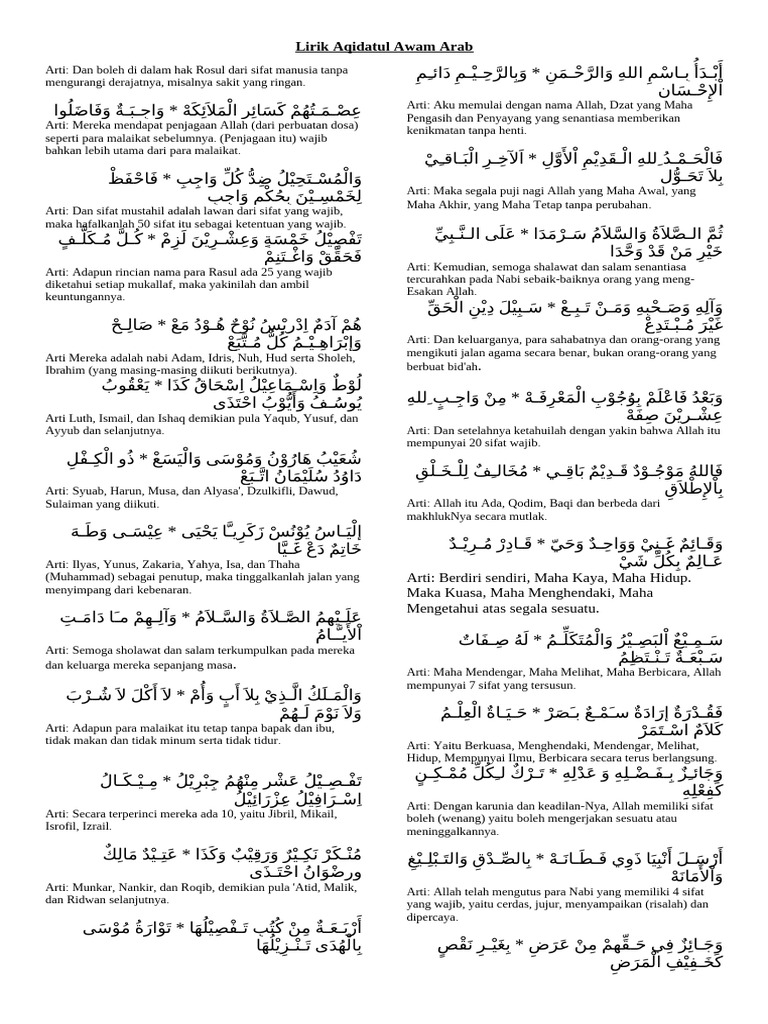 Lirik Aqidatul Awam Arab
أَبْـدَأُ بِـاسْمِ اللهِ وَالرَّحْـمَنِ * وَبِالرَّحِـيْـمِ دَائِـمِ
اْلإِحْـسَانِ
Arti: Aku memulai dengan nama Allah, Dzat yang Maha
Pengasih dan Penyayang yang senantiasa memberikan
kenikmatan tanpa henti.
فَالْحَـمْـدُ ِللهِ الْـقَدِيْمِ اْلأَوَّلِ * اَلآخِـرِ الْبَـاقـِيْ
بِلاَ تَحَـوُّلِ
Arti: Maka segala puji nagi Allah yang Maha Awal, yang
Maha Akhir, yang Maha Tetap tanpa perubahan.
ثُمَّ الـصَّلاَةُ وَالسَّلاَمُ سَـرْمَدَا * عَلَى الـنَّـبِيِّ
خَيْرِ مَنْ قَدْ وَحَّدَا
Arti: Kemudian, semoga shalawat dan salam senantiasa
tercurahkan pada Nabi sebaik-baiknya orang yang meng-
Esakan Allah.
وَآلِهِ وَصَـحْبِهِ وَمَـنْ تَـبِـعْ * سَـبِيْلَ دِيْنِ الْحَقِّ
غَيْرَ مُـبْـتَدِعْ
Arti: Dan keluarganya, para sahabatnya dan orang-orang yang
mengikuti jalan agama secara benar, bukan orang-orang yang
berbuat bid'ah.
وَبَعْدُ فَاعْلَمْ بِوُجُوْبِ الْمَعْرِفَـهْ * مِنْ وَاجِـبٍ ِللهِ
عِشْـرِيْنَ صِفَهْ
Arti: Dan setelahnya ketahuilah dengan yakin bahwa Allah itu
mempunyai 20 sifat wajib.
فَاللهُ مَوْجُـوْدٌ قَـدِيْمٌ بَاقِـي * مُخَالـِفٌ لِلْـخَـلْـقِ
بِاْلإِطْلاَقِ
Arti: Allah itu Ada, Qodim, Baqi dan berbeda dari
makhlukNya secara mutlak.
وَقَـائِمٌ غَـنِيْ وَوَاحِـدٌ وَحَيّ * قَـادِرْ مُـرِيْـدٌ
عَـالِمٌ بِكُلِّ شَيْ
Arti: Berdiri sendiri, Maha Kaya, Maha Hidup.
Maka Kuasa, Maha Menghendaki, Maha
Mengetahui atas segala sesuatu.
سَـمِـيْعٌ اْلبَصِـيْرُ وَالْمُتَكَلِّـمُ * لَهُ صِـفَاتٌ
سَـبْعَـةٌ تَـنْـتَظِمُ
Arti: Maha Mendengar, Maha Melihat, Maha Berbicara, Allah
mempunyai 7 sifat yang tersusun.
فَقُـدْرَةٌ إِرَادَةٌ سـَمْـعٌ بـَصَرْ * حَـيَـاةٌ الْعِلْـمُ
كَلاَمٌ اسْـتَمَرْ
Arti: Yaitu Berkuasa, Menghendaki, Mendengar, Melihat,
Hidup, Mempunyai Ilmu, Berbicara secara terus berlangsung.
وَجَائـِزٌ بـِفَـضْـلِهِ وَ عَدْلِهِ * تَـرْكٌ لـِكُلِّ مُمْـكِـنٍ
كَفِعْلِهِ
Arti: Dengan karunia dan keadilan-Nya, Allah memiliki sifat
boleh (wenang) yaitu boleh mengerjakan sesuatu atau
meninggalkannya.
أَرْسَـلَ أَنْبِيَا ذَوِي فَـطَـانَـهْ * بِالصِّـدْقِ وَالتَـبْلِـيْغِ
وَاْلأَمَانَهْ
Arti: Allah telah mengutus para Nabi yang memiliki 4 sifat
yang wajib, yaitu cerdas, jujur, menyampaikan (risalah) dan
dipercaya.
وَجَـائِزٌ فِي حَـقِّهِمْ مِنْ عَرَضِ * بِغَيْـرِ نَقْصٍ
كَخَـفِيْفِ الْمَرَضِ
Arti: Dan boleh di dalam hak Rosul dari sifat manusia tanpa
mengurangi derajatnya, misalnya sakit yang ringan.
عِصْـمَـتُهُمْ كَسَائِرِ الْمَلاَئِكَهْ * وَاجِـبَـةٌ وَفَاضَلُوا
Arti: Mereka mendapat penjagaan Allah (dari perbuatan dosa)
seperti para malaikat sebelumnya. (Penjagaan itu) wajib
bahkan lebih utama dari para malaikat.
وَالْمُسْـتَحِيْلُ ضِدُّ كُلِّ وَاجِبِ * فَاحْفَظْ
لِخَمْسِـيْنَ بِحُكْمٍ وَاجِبِ
Arti: Dan sifat mustahil adalah lawan dari sifat yang wajib,
maka hafalkanlah 50 sifat itu sebagai ketentuan yang wajib.
تَفْصِيْلُ خَمْسَةٍ وَعِشْـرِيْنَ لَزِمْ * كُـلَّ مُـكَلَّـفٍ
فَحَقِّقْ وَاغْـتَنِمْ
Arti: Adapun rincian nama para Rasul ada 25 yang wajib
diketahui setiap mukallaf, maka yakinilah dan ambil
keuntungannya.
هُمْ آدَمٌ اِدْرِيْسُ نُوْحٌ هُـوْدُ مَعْ * صَالِـحْ
وَإِبْرَاهِـيْـمُ كُلٌّ مُـتَّبَعْ
Arti Mereka adalah nabi Adam, Idris, Nuh, Hud serta Sholeh,
Ibrahim (yang masing-masing diikuti berikutnya).
لُوْطٌ وَاِسْـمَاعِيْلُ اِسْحَاقُ كَذَا * يَعْقُوبُ
يُوسُـفُ وَأَيُّوْبُ احْتَذَى
Arti Luth, Ismail, dan Ishaq demikian pula Yaqub, Yusuf, dan
Ayyub dan selanjutnya.
شُعَيْبُ هَارُوْنُ وَمُوْسَى وَالْيَسَعْ * ذُو الْكِـفْلِ
دَاوُدُ سُلَيْمَانُ اتَّـبَعْ
Arti: Syuab, Harun, Musa, dan Alyasa', Dzulkifli, Dawud,
Sulaiman yang diikuti.
إلْيَـاسُ يُوْنُسْ زَكَرِيـَّا يَحْيَى * عِيْسَـى وَطَـهَ
خَاتِمٌ دَعْ غَـيَّا
Arti: Ilyas, Yunus, Zakaria, Yahya, Isa, dan Thaha
(Muhammad) sebagai penutup, maka tinggalkanlah jalan yang
menyimpang dari kebenaran.
عَلَـيْهِمُ الصَّـلاَةُ وَالسَّـلاَمُ * وَآلِـهِمْ مـَا دَامَـتِ
اْلأَيـَّـامُ
Arti: Semoga sholawat dan salam terkumpulkan pada mereka
dan keluarga mereka sepanjang masa.
وَالْمَـلَكُ الَّـذِيْ بِلاَ أَبٍ وَأُمْ * لاَ أَكْلَ لاَ شُـرْبَ
وَلاَ نَوْمَ لَـهُمْ
Arti: Adapun para malaikat itu tetap tanpa bapak dan ibu,
tidak makan dan tidak minum serta tidak tidur.
تَفْـصِـيْلُ عَشْرٍ مِنْهُمُ جِبْرِيْلُ * مِـيْـكَـالُ
اِسْـرَافِيْلُ عِزْرَائِيْلُ
Arti: Secara terperinci mereka ada 10, yaitu Jibril, Mikail,
Isrofil, Izrail.
مُنْـكَرْ نَكِـيْرٌ وَرَقِيْبٌ وَكَذَا * عَتِـيْدٌ مَالِكٌ
ورِضْوَانُ احْتَـذَى
Arti: Munkar, Nankir, dan Roqib, demikian pula 'Atid, Malik,
dan Ridwan selanjutnya.
أَرْبَـعَـةٌ مِنْ كُتُبٍ تَـفْصِيْلُهَا * تَوْارَةُ مُوْسَى
بِالْهُدَى تَـنْـزِيْلُهَا